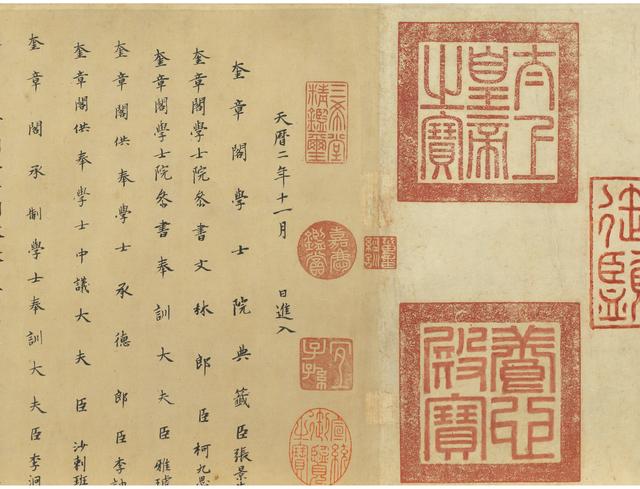 太上皇帝之寶
養心殿寶
天曆二年十一月 日進入
三希堂精鑑璽
嘉慶鑑賞
宜子孫
宣統御覽之寶
奎章閣學士院典籤臣張景
奎章閣學士院叅書文林郎臣柯九思
奎章閣學士院叅書奉訓大夫臣雅琥
奎章閣供奉學士承德郎臣李訥
奎章閣供奉學士中議大夫臣沙剌班
奎章閣承制學士奉訓大夫臣李泂